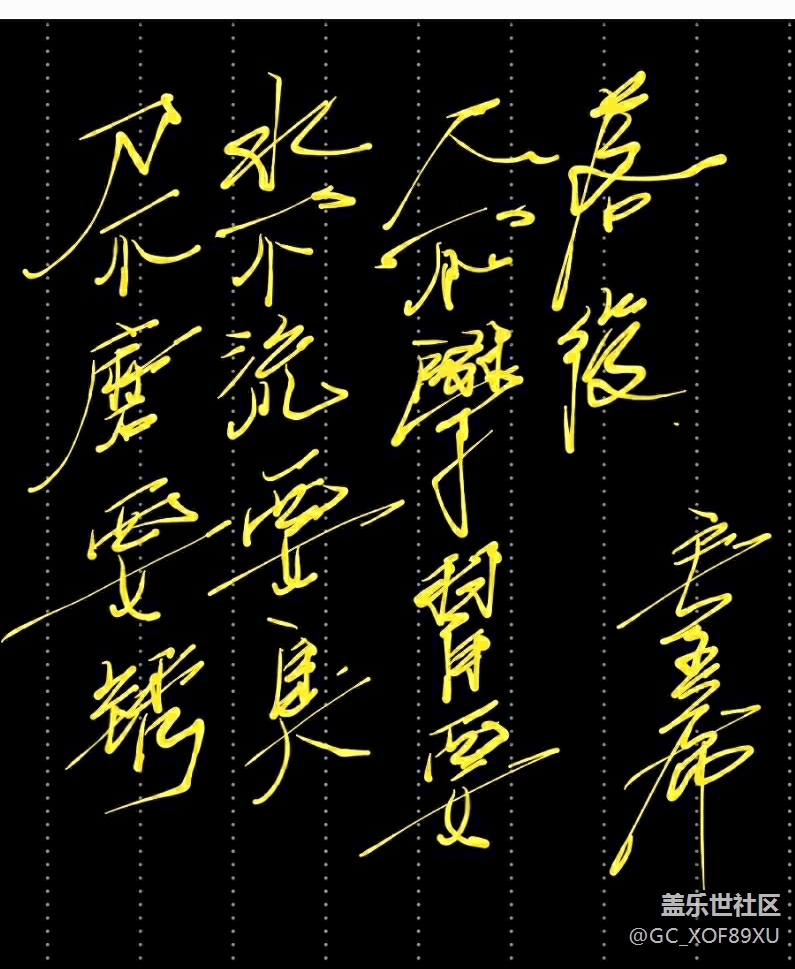 刀不磨要锈
水不流要臭
人不學習要
落後
毛主席
盖乐世社区
@GC_XOF89XU